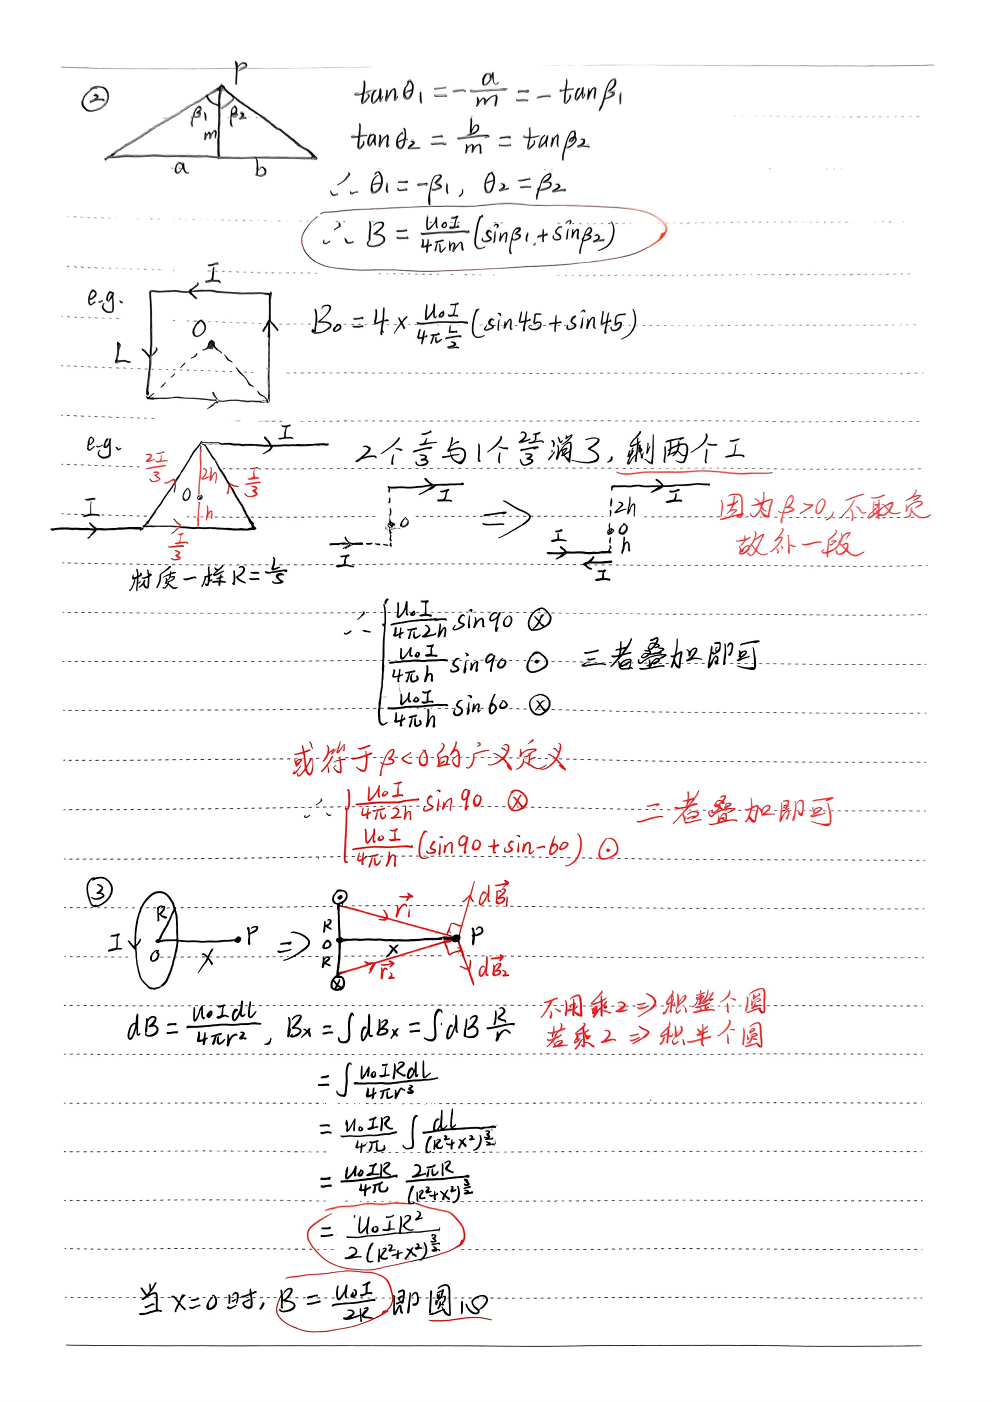 ②
P
β₁ β₂
m
a b
tanθ₁ = -a/m = -tanβ₁
tanθ₂ = b/m = tanβ₂
∴ θ₁ = -β₁, θ₂ = β₂
∴ B = u₀I/4πm (sinβ₁ + sinβ₂)
e.g.
I
O
L
B₀ = 4 × u₀I/4π(L/2) (sin45 + sin45)
e.g.
I
2I/3
2h
O
I/3
h
I
I/3
材质一样 R = L/S
2个 I/3 与1个 2I/3 消了, 剩两个 I
I
O
I
⇒
2h
I
O
I
h
I
因为 β>0, 不取负
故补一段
∴ { u₀I/4π2h sin90 ⊗
u₀I/4πh sin90 ⊙
u₀I/4πh sin60 ⊗
三者叠加即可
或符于 β<0 的广义定义
∴ { u₀I/4π2h sin90 ⊗
u₀I/4πh (sin90 + sin-60) ⊙
二者叠加即可
③
R
I
O
x
P
⇒
R
O
R
x
r₁→
r₂→
P
dB₁→
dB₂→
dB = u₀Idl/4πr², Bx = ∫dBx = ∫dB R/r
不用乘2 ⇒ 积整个圆
若乘2 ⇒ 积半个圆
= ∫ u₀IRdl/4πr³
= u₀IR/4π ∫ dl/(R²+x²)^(3/2)
= u₀IR/4π 2πR/(R²+x²)^(3/2)
= u₀IR²/2(R²+x²)^(3/2)
当 x=0 时, B = u₀I/2R 即圆心